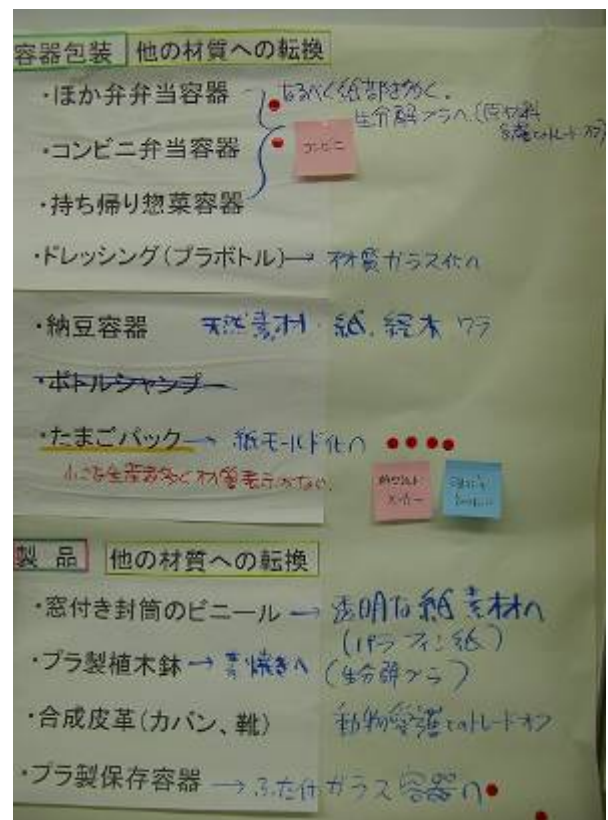 容器包装 他の材質への転換
・ほか弁弁当容器 なるべく紙部を多く、
生分解プラへ(原材料
とのトレードオフ)
・コンビニ弁当容器 コンビニ
・持ち帰り惣菜容器
・ドレッシング(プラボトル)→ 材質ガラス化へ
・納豆容器 天然素材・紙、経木 ワラ
・ボトルシャンプー
・たまごパック → 紙モールド化へ
小さな生産者多く材質表示がない。
製品 他の材質への転換
・窓付き封筒のビニール → 透明な紙素材へ
(パラフィン紙)
・プラ製植木鉢 → 素焼きへ (生分解プラ)
・合成皮革(カバン、靴) 動物愛護とのトレードオフ
・プラ製保存容器 → ふた付ガラス容器へ